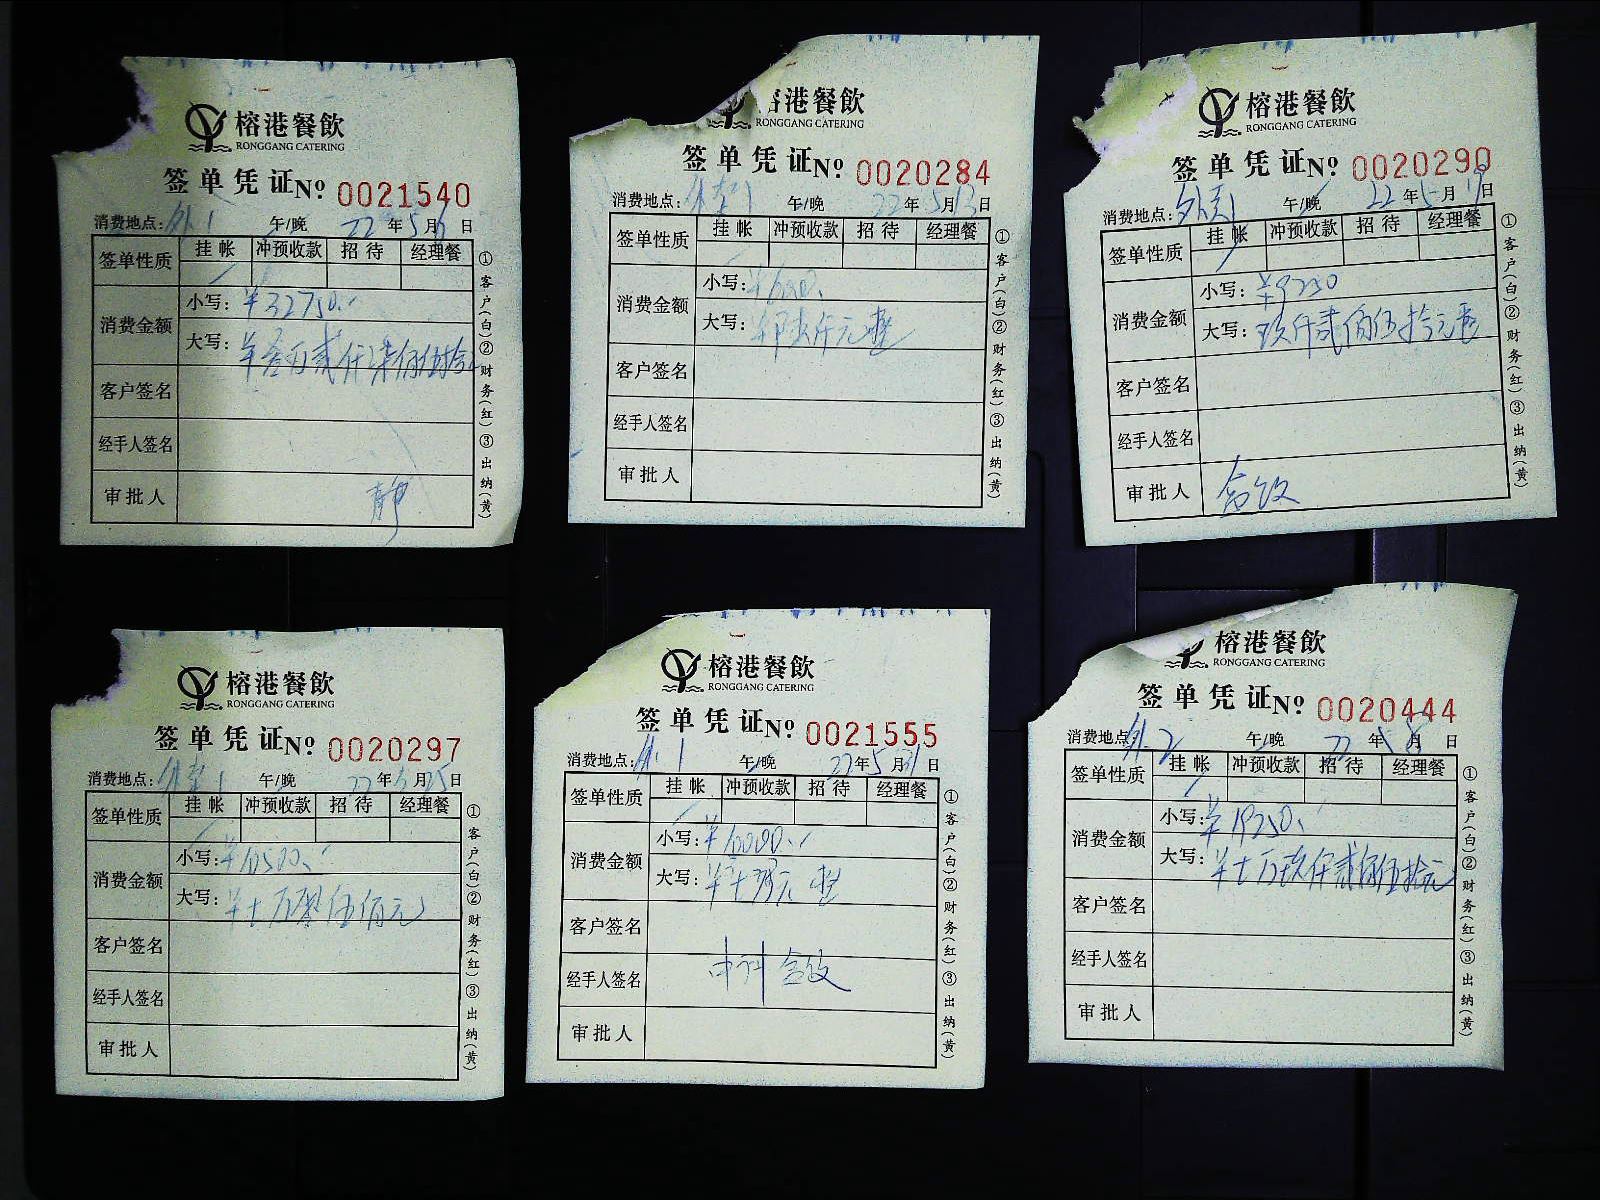 榕港餐飲
RONGGANG CATERING
签单凭证 № 0021540
消费地点: 外1 午/晚 22年5月 日
签单性质 挂帐 冲预收款 招待 经理餐
消费金额 小写: ¥32750.
大写: 叁万贰仟柒佰伍拾
客户签名
经手人签名
审批人
①客户(白)②财务(红)③出纳(黄)
港餐飲
RONGGANG CATERING
签单凭证 № 0020284
消费地点: 午/晚 22年5月13日
签单性质 挂帐 冲预收款 招待 经理餐
消费金额 小写:
大写: 仟元整
客户签名
经手人签名
审批人
①客户(白)②财务(红)③出纳(黄)
榕港餐飲
RONGGANG CATERING
签单凭证 № 0020290
消费地点: 午/晚 22年5月 日
签单性质 挂帐 冲预收款 招待 经理餐
消费金额 小写: ¥9250
大写: 玖仟贰佰伍拾元整
客户签名
经手人签名
审批人
①客户(白)②财务(红)③出纳(黄)
榕港餐飲
RONGGANG CATERING
签单凭证 № 0020297
消费地点: 午/晚 22年 月25日
签单性质 挂帐 冲预收款 招待 经理餐
消费金额 小写: ¥10500.
大写: 万零伍佰元
客户签名
经手人签名
审批人
①客户(白)②财务(红)③出纳(黄)
榕港餐飲
RONGGANG CATERING
签单凭证 № 0021555
消费地点: 外1 午/晚 22年5月31日
签单性质 挂帐 冲预收款 招待 经理餐
消费金额 小写: ¥10000.
大写: 元整
客户签名
经手人签名
审批人
①客户(白)②财务(红)③出纳(黄)
榕港餐飲
RONGGANG CATERING
签单凭证 № 0020444
消费地点: 外2 午/晚 22年5月 日
签单性质 挂帐 冲预收款 招待 经理餐
消费金额 小写: ¥19250.
大写: 万玖仟贰佰伍拾元
客户签名
经手人签名
审批人
①客户(白)②财务(红)③出纳(黄)